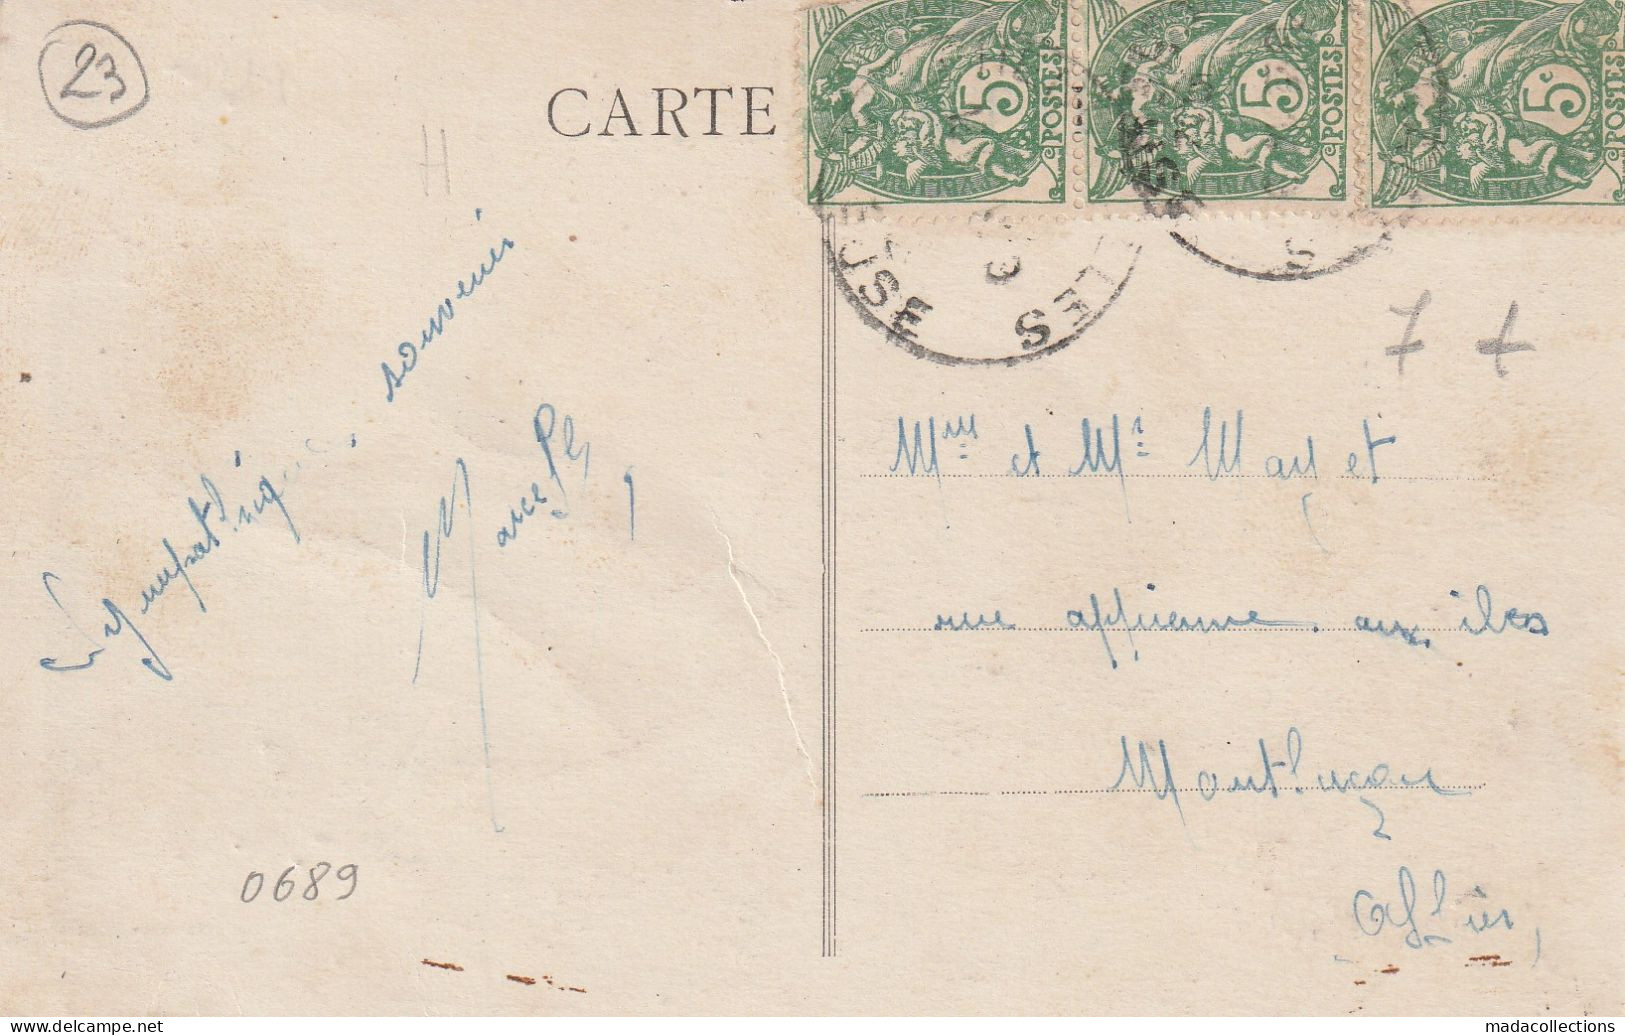 23
CARTE
5c
POSTES
5c
POSTES
5c
POSTES
EUSE
SELLE
S
H
7
Sympathique souvenir
Mme et Mr Mayet
rue appienne aux iles
Montluçon
Allier,
0689
www.delcampe.net
madacollections